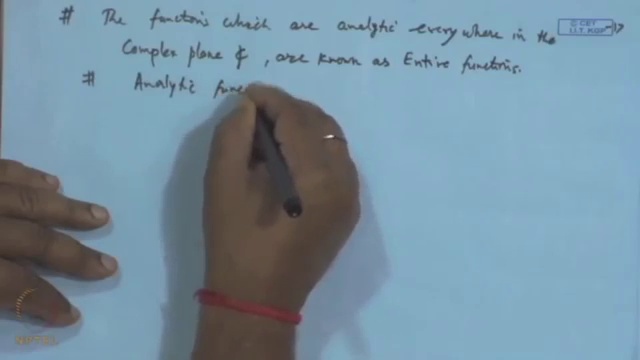 # The functions which are analytic everywhere in the
Complex plane ₵, are known as Entire functions.
# Analytic func
© CET
I.I.T. KGP
NPTEL